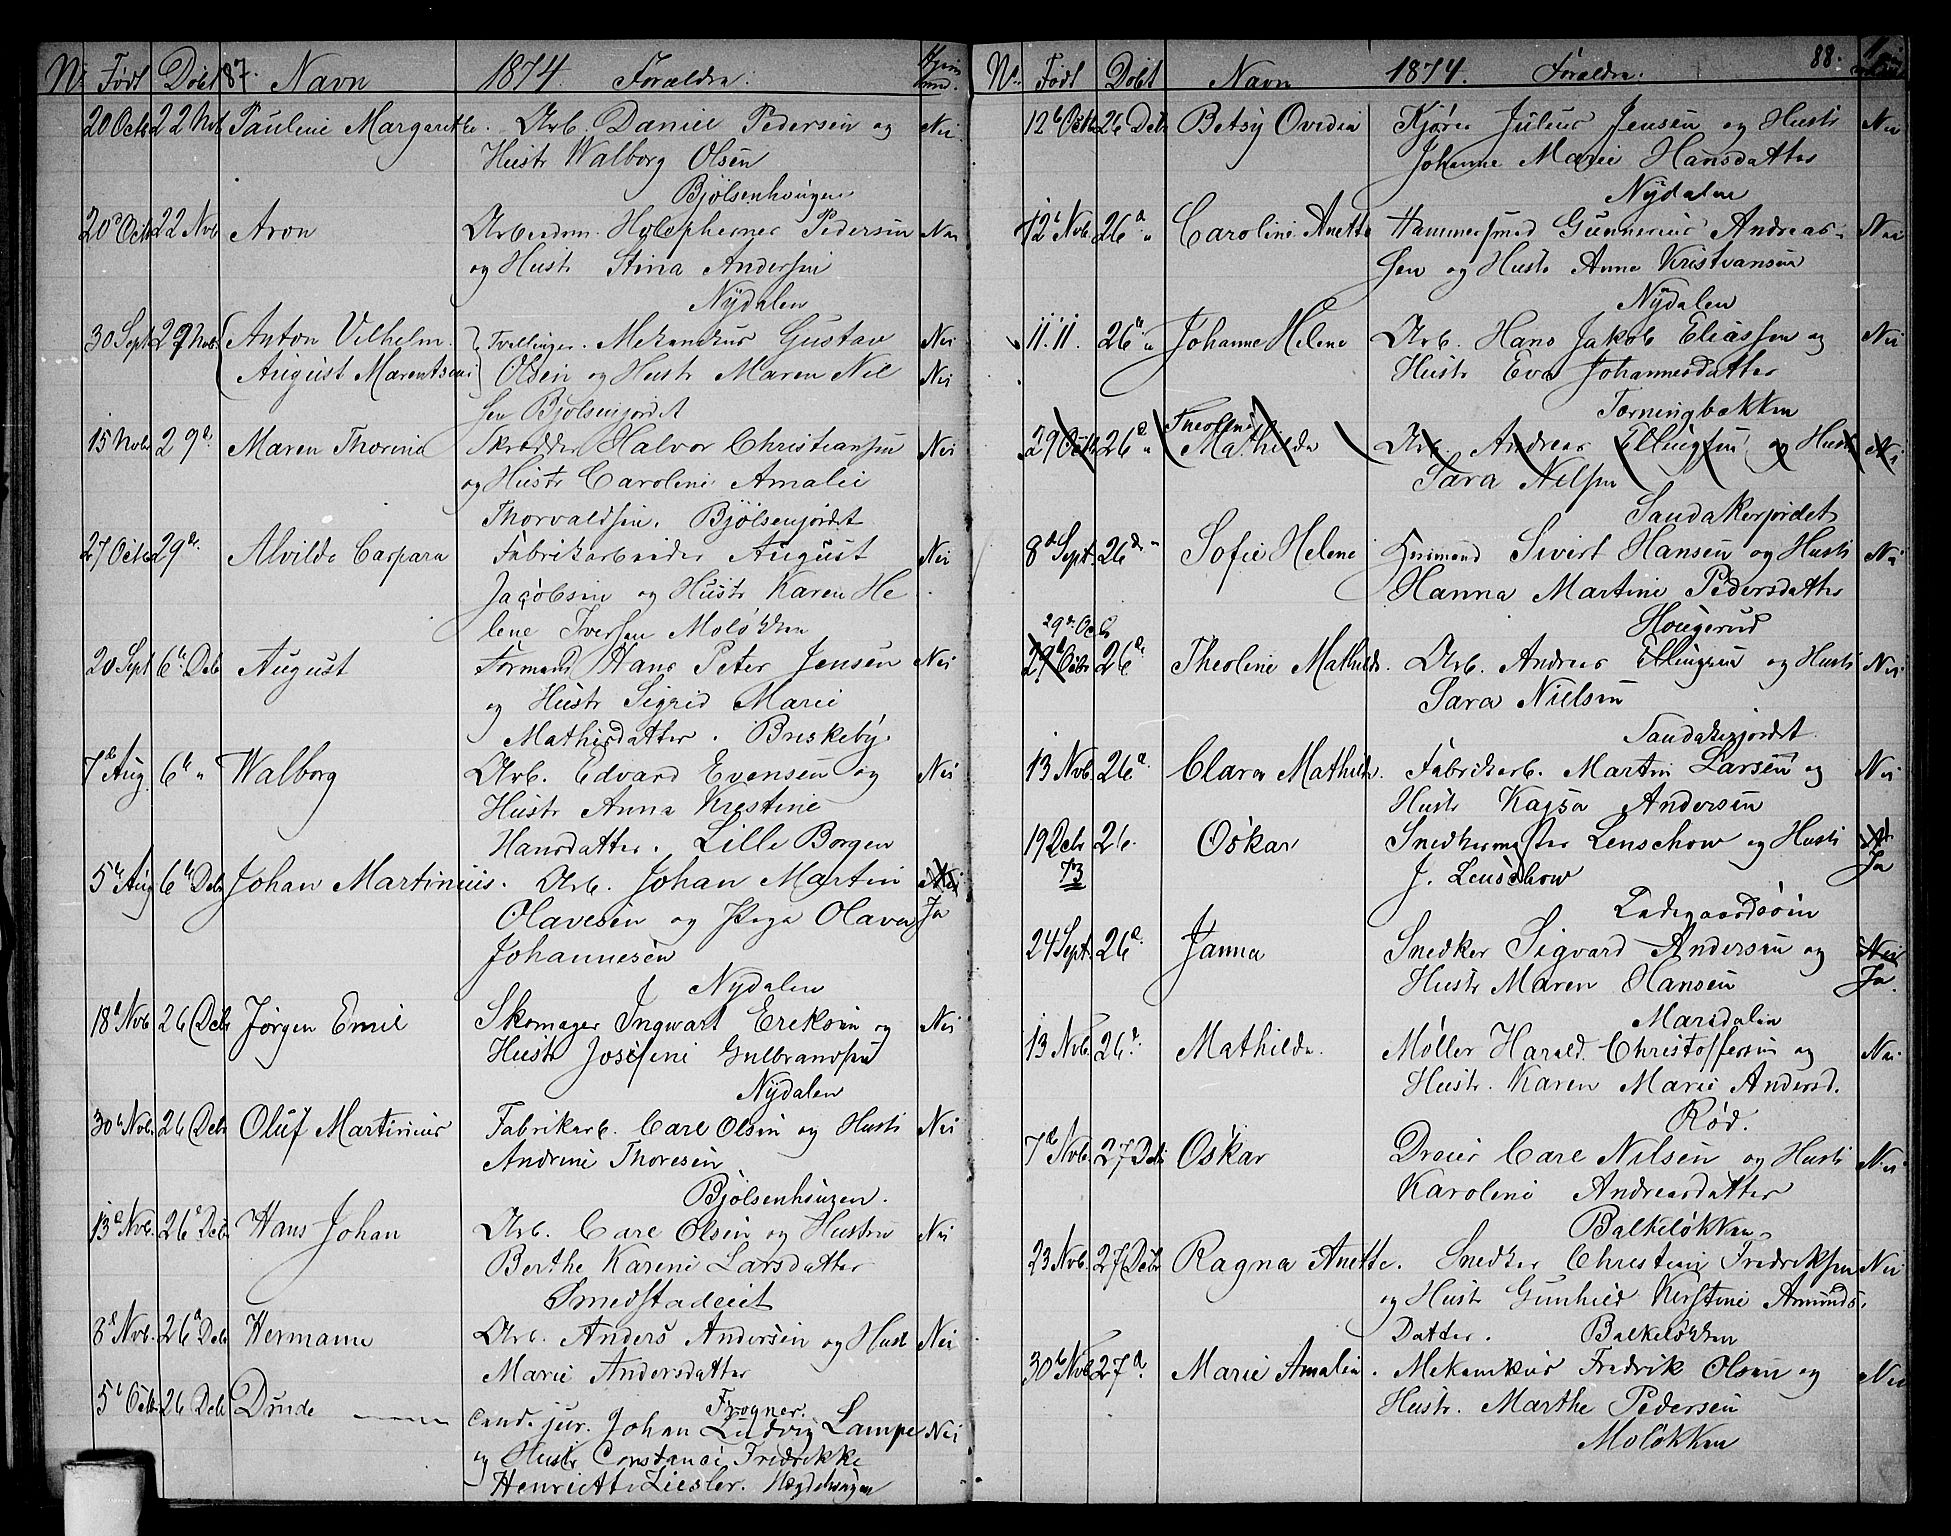 No Født Døbt 87. Navn 1874 Forældre:
20 Octb 22 Nvb Pauline Margarethe. Arb. Daniel Pedersen og Nei
Hustr Walborg Olsen
Bjølsenhougen
20d Octb 22 Nvb Aron Arbeidm. Holophernes Pedersen Nei
og Hustr Stina Andersen
Nydalen
30 Sept 29 Nvb Anton Vilhelm. Tvillinger. Mekanikus Gustav Nei
August Marentsius Olsen og Hustr Maren Niel Nei
sen Bjølsenjordet
15 Novb 29d. Maren Thorina Skrædder Halvor Christiansen Nei
og Hustr Caroline Amalie
Thorvaldsen. Bjølsenjordet
27 Octb 29de. Alvilde Caspara Fabrikarbeider August Nei
Jacobsen og Hustr Karen He
lene Iversen Moløkken
20 Sept 6te Deb August Formand Hans Peter Jensen Nei
og Hustr Sigrid Marie
Mathisdatter. Briskeby.
7d Aug. 6te " Walborg Arb. Edvard Evensen og Nei
Hustr Anna Kristine
Hansdatter. Lille Borgen
5te Aug 6te Deb Johan Martinius. Arb. Johan Martin Nei
Olavesen og Olava Ja
Johannesen
Nydalen
18d Nvb 26 Deb Jørgen Emil Skomager Ingwart Ereksen og Nei
Hustr Josefine Gulbrandsen
Nydalen
30te Nvb. 26 Deb Oluf Martinius Fabrikarb. Carl Olsen og Hustr Nei
Andrine Thoresen
Bjølsenhougen.
13d Nvb. 26d Deb Hans Johan Arb. Carl Olsen og Hustru Nei
Berthe Karine Larsdatter
Smedstadeiet
8d Nvb. 26d Deb Hermann Arb. Anders Andersen og Hustr Nei
Marie Andersdatter
Frogner.
5te Octb 26 Deb Drude Cand. jur. Johan Ludvig Lampe Nei
og Hustr Constance Fredrikke
Henriette Ziesler. Hægdehougen
No Født Døbt Navn 1874. Forældre: 88.
12te Octb 26 Deb Betsy Ovidia Kjører Julius Jensen og Hustr Nei
Johanne Marie Hansdatter
Nydalen
12te Nvb. 26d " Caroline Anette Hammersmed Gunnerius Andreas- Nei
sen og Hustr Anne Kristiansen
Nydalen
11.11. 26d " Johanne Helene Arb. Hans Jakob Eliassen og Nei
Hustr Eva Johannesdatter
Torningbakken
Theoline
29 Octb 26d " Mathilde Arb. Andreas Ellingsen og Hustr Nei
Sara Nilsen
Sandakerjordet
8d Sept. 26de " Sofie Helene Formand Sivert Hansen og Hustr Nei
Hanna Martine Pedersdatter
Hougerud
29de Oct
29d Octbr 26d. Theoline Mathilde. Arb. Andreas Ellingsen og Hustr Nei
Sara Nielsen
Sandakerjordet
13 Nvb. 26d. Clara Mathilde. Fabrikarb. Martin Larsen og Nei
Hustr Kajsa Andersen
19 Deb 26. Oskar Snedkermester Lenschow og Hustr
73 J. Lenschow Ja
Ladegaardsøen
24 Sept. 26d. Janna Snedker Sigvard Andersen og Nei
Hustr Maren Hansen Ja.
Maridalen
13 Nvb. 26d. Mathilde. Møller Harald Christoffersen og Nei
Hustr. Karen Marie Andersd.
Rød.
7d Nvb. 27 Deb Oskar Dreier Carl Nilsen og Hustr Nei
Karoline Andreasdatter
Balkeløkken
23 Nvb. 27 Deb Ragna Anette. Snedker Christian Fredriksen Nei
og Hustr Gunhild Kerstine Amunds
Datter. Balkeløkken
30te Nvb 27d. Marie Amalia. Mekanikus Fredrik Olsen og Nei
Hustr. Marthe Pedersen
Moløkken